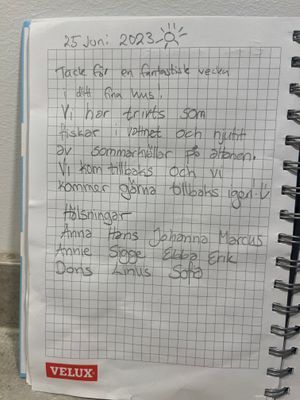 25 Juni 2023
Tack för en fantastisk vecka
i ditt fina hus!
Vi har trivts som
fiskar i vattnet och njutit
av sommarkvällar på altanen.
Vi kom tillbaks och vi
kommer gärna tillbaks igen!
Hälsningar
Anna Hans Johanna Marcus
Annie Sigge Ebba Erik
Doris Linus Sofia
VELUX